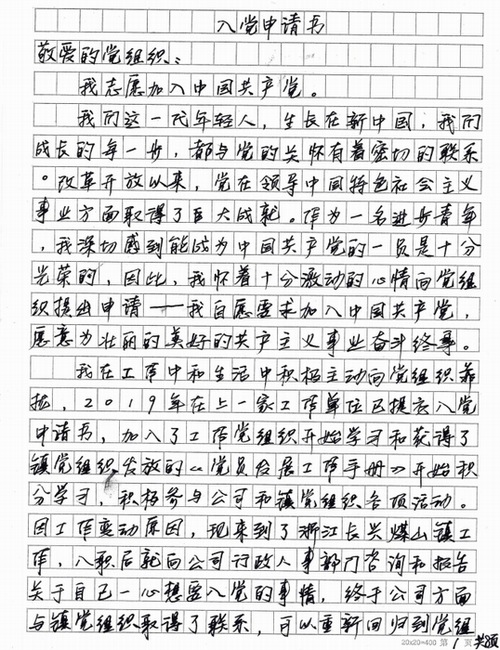 入党申请书
敬爱的党组织：
我志愿加入中国共产党。
我们这一代年轻人，生长在新中国，我们
成长的每一步，都与党的关怀有着密切的联系
。改革开放以来，党在领导中国特色社会主义
事业方面取得了巨大成就。作为一名进步青年
，我深切感到能成为中国共产党的一员是十分
光荣的，因此，我怀着十分激动的心情向党组
织提出申请——我自愿要求加入中国共产党，
愿意为壮丽的美好的共产主义事业奋斗终身。
我在工作中和生活中积极主动向党组织靠
拢，2019年在上一家工作单位已提交入党
申请书，加入了工作党组织开始学习和获得了
镇党组织发放的《党员发展工作手册》开始积
分学习，积极参与公司和镇党组织各项活动。
因工作变动原因，现来到了浙江长兴煤山镇工
作，入职后就向公司行政人事部门咨询和报告
关于自己一心想要入党的事情，终于公司方面
与镇党组织取得了联系，可以重新回归到党组
20×20=400 第 1 页 共 页